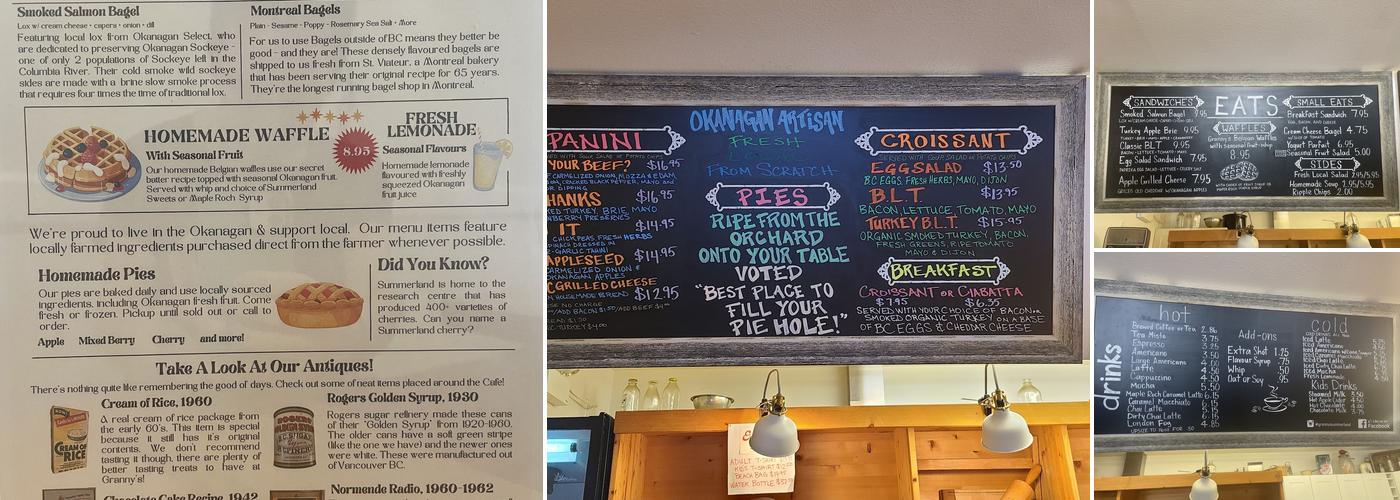 Smoked Salmon Bagel
Lox w/ cream cheese • capers • onion • dill
Featuring local lox from Okanagan Select, who
are dedicated to preserving Okanagan Sockeye -
one of only 2 populations of Sockeye left in the
Columbia River. Their cold smoke wild sockeye
sides are made with a brine slow smoke process
that requires four times the time of traditional lox.
Montreal Bagels
Plain - Sesame - Poppy - Rosemary Sea Salt + More
For us to use Bagels outside of BC means they better be
good - and they are! These densely flavoured bagels are
shipped to us fresh from St. Viateur, a Montreal bakery
that has been serving their original recipe for 65 years.
They're the longest running bagel shop in Montreal.
HOMEMADE WAFFLE
With Seasonal Fruit
Our homemade Belgian waffles use our secret
batter recipe topped with seasonal Okanagan fruit.
Served with whip and choice of Summerland
Sweets or Maple Roch Syrup
8.95
FRESH
LEMONADE
Seasonal Flavours
Homemade lemonade
flavoured with freshly
squeezed Okanagan
fruit juice
We're proud to live in the Okanagan & support local. Our menu items feature
locally farmed ingredients purchased direct from the farmer whenever possible.
Homemade Pies
Our pies are baked daily and use locally sourced
ingredients, including Okanagan fresh fruit. Come
fresh or frozen. Pickup until sold out or call to
order.
Apple Mixed Berry Cherry and more!
Did You Know?
Summerland is home to the
research centre that has
produced 400+ varieties of
cherries. Can you name a
Summerland cherry?
Take A Look At Our Antiques!
There's nothing quite like remembering the good of days. Check out some of neat items placed around the Cafe!
Cream of Rice, 1960
A real cream of rice package from
the early 60's. This item is special
because it still has it's original
contents. We don't recommend
tasting it though, there are plenty of
better tasting treats to have at
Granny's!
CREAM OF RICE
Rogers Golden Syrup, 1930
Rogers sugar refinery made these cans
of their "Golden Syrup" from 1920-1960.
The older cans have a soft green stripe
(like the one we have) and the newer ones
were white. These were manufactured out
of Vancouver BC.
Chocolate Cake Recipe, 1942
Normende Radio, 1960-1962
OKANAGAN ARTISAN
FRESH
FROM SCRATCH
PANINI
YOUR BEEF? $16.95
CARMELIZED ONION, MOZZA &
CRACKED BLACK PEPPER, MAYO
DIPPING
HANKS $16.95
TURKEY, BRIE, MAYO
IT $14.95
CHICKPEAS, FRESH HERBS
DRESSED IN
GARLIC TAHINI
APPLESEED $14.95
CARMELIZED ONION &
OKANAGAN APPLES
GRILLED CHEESE $12.95
PIES
RIPE FROM THE
ORCHARD
ONTO YOUR TABLE
VOTED
"BEST PLACE TO
FILL YOUR
PIE HOLE!"
CROISSANT
SERVED WITH SOUP, SALAD OR POTATO CHIPS
EGG SALAD $13.50
B.C. EGGS, FRESH HERBS, MAYO, DIJON
B.L.T. $13.95
BACON, LETTUCE, TOMATO, MAYO
TURKEY B.L.T. $15.95
ORGANIC SMOKED TURKEY, BACON,
FRESH GREENS, RIPE TOMATO
MAYO & DIJON
BREAKFAST
CROISSANT OR CIABATTA
$7.95 $6.35
SERVED WITH YOUR CHOICE OF BACON OR
SMOKED ORGANIC TURKEY ON A BASE
OF BC EGGS & CHEDDAR CHEESE
ADULT T-SHIRT
KIDS T-SHIRT
BEACH BAG
WATER BOTTLE
EATS
SANDWICHES
Smoked Salmon Bagel 9.95
Turkey Apple Brie 9.95
Classic BLT 9.95
Egg Salad Sandwich 7.95
Apple Grilled Cheese 7.95
WAFFLES
Granny's Belgian Waffles
8.95
SMALL EATS
Breakfast Sandwich 7.95
Cream Cheese Bagel 4.75
Yogurt Parfait 6.95
Seasonal Fruit Salad 5.00
SIDES
Fresh Local Salad 2.95/5.95
Homemade Soup 1.95/5.95
Ripple Chips 2.00
drinks
hot
Brewed Coffee or Tea 2.86
Tea Misto 3.75
Espresso 3.25
Americano 3.50
Large Americano 4.00
Latte 4.50
Cappuccino 4.50
Mocha 5.50
Maple Rock Caramel Latte 6.15
Caramel Macchiato 6.15
Chai Latte 5.15
Dirty Chai Latte 6.15
London Fog 4.85
Add-ons
Extra Shot 1.25
Flavour Syrup .75
Whip .50
Oat or Soy .95
cold
Iced Latte
Iced Americano
Iced Chai Latte
Iced Dirty Chai Latte
Iced Mocha
Fresh Lemonade
Kids Drinks
Steamed Milk
Hot Apple Cider
Hot Chocolate
Chocolate Milk
Facebook